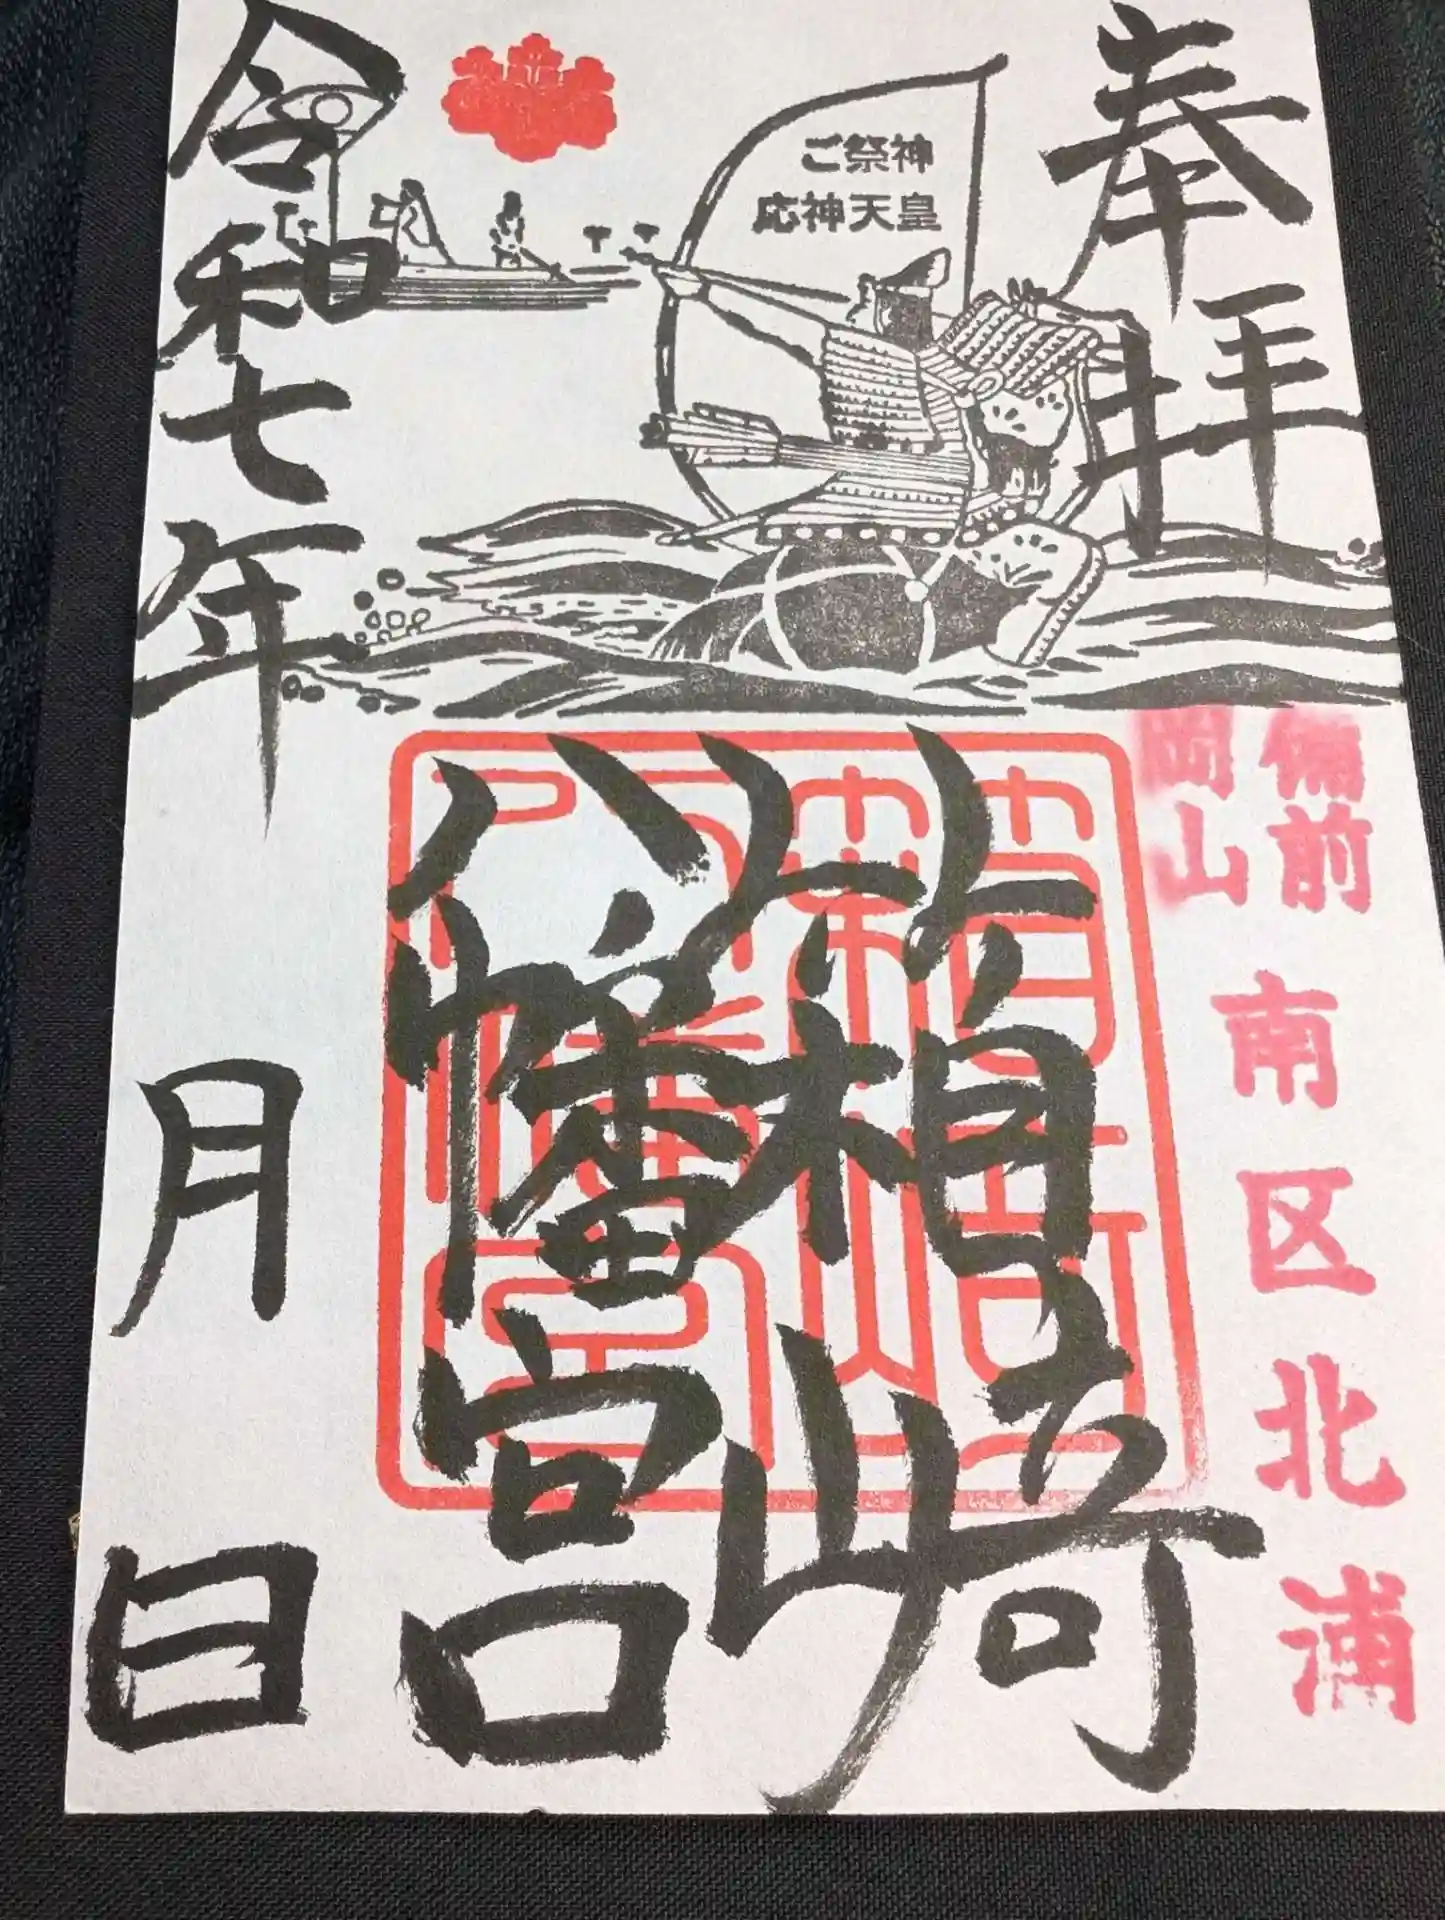 奉拝
ご祭神
応神天皇
備前
岡山
南区北浦
箱崎
八幡宮
箱崎
八幡宮
令和七年
月
日